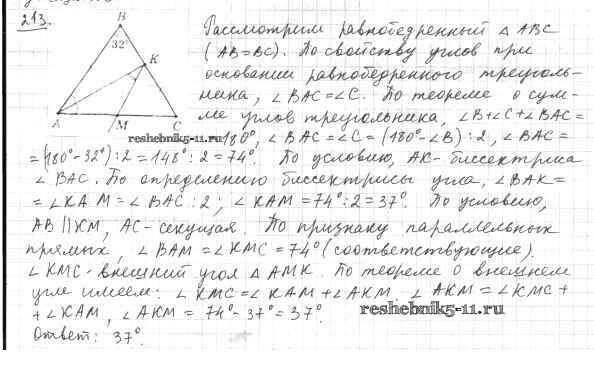 213.
B
32°
K
A
M
C
Рассмотрим равнобедренный △ ABC
(AB=BC). По свойству углов при
основании равнобедренного треуголь-
ника, ∠BAC=∠C. По теореме о сум-
ме углов треугольника, ∠B+∠C+∠BAC=
reshebnik5-11.ru
=180°, ∠BAC=∠C=(180°-∠B):2, ∠BAC=
=(180°-32°):2=148°:2=74°. По условию, AK-биссектриса
∠BAC. По определению биссектрисы угла, ∠BAK=
=∠KAM=∠BAC:2; ∠KAM=74°:2=37°. По условию,
AB∥KM, AC-секущая. По признаку параллельных
прямых, ∠BAM=∠KMC=74° (соответствующие).
∠KMC-внешний угол △AMK. По теореме о внешнем
угле имеем: ∠KMC=∠KAM+∠AKM. ∠AKM=∠KMC+
+∠KAM, ∠AKM=74°-37°=37°.
reshebnik5-11.ru
Ответ: 37°.